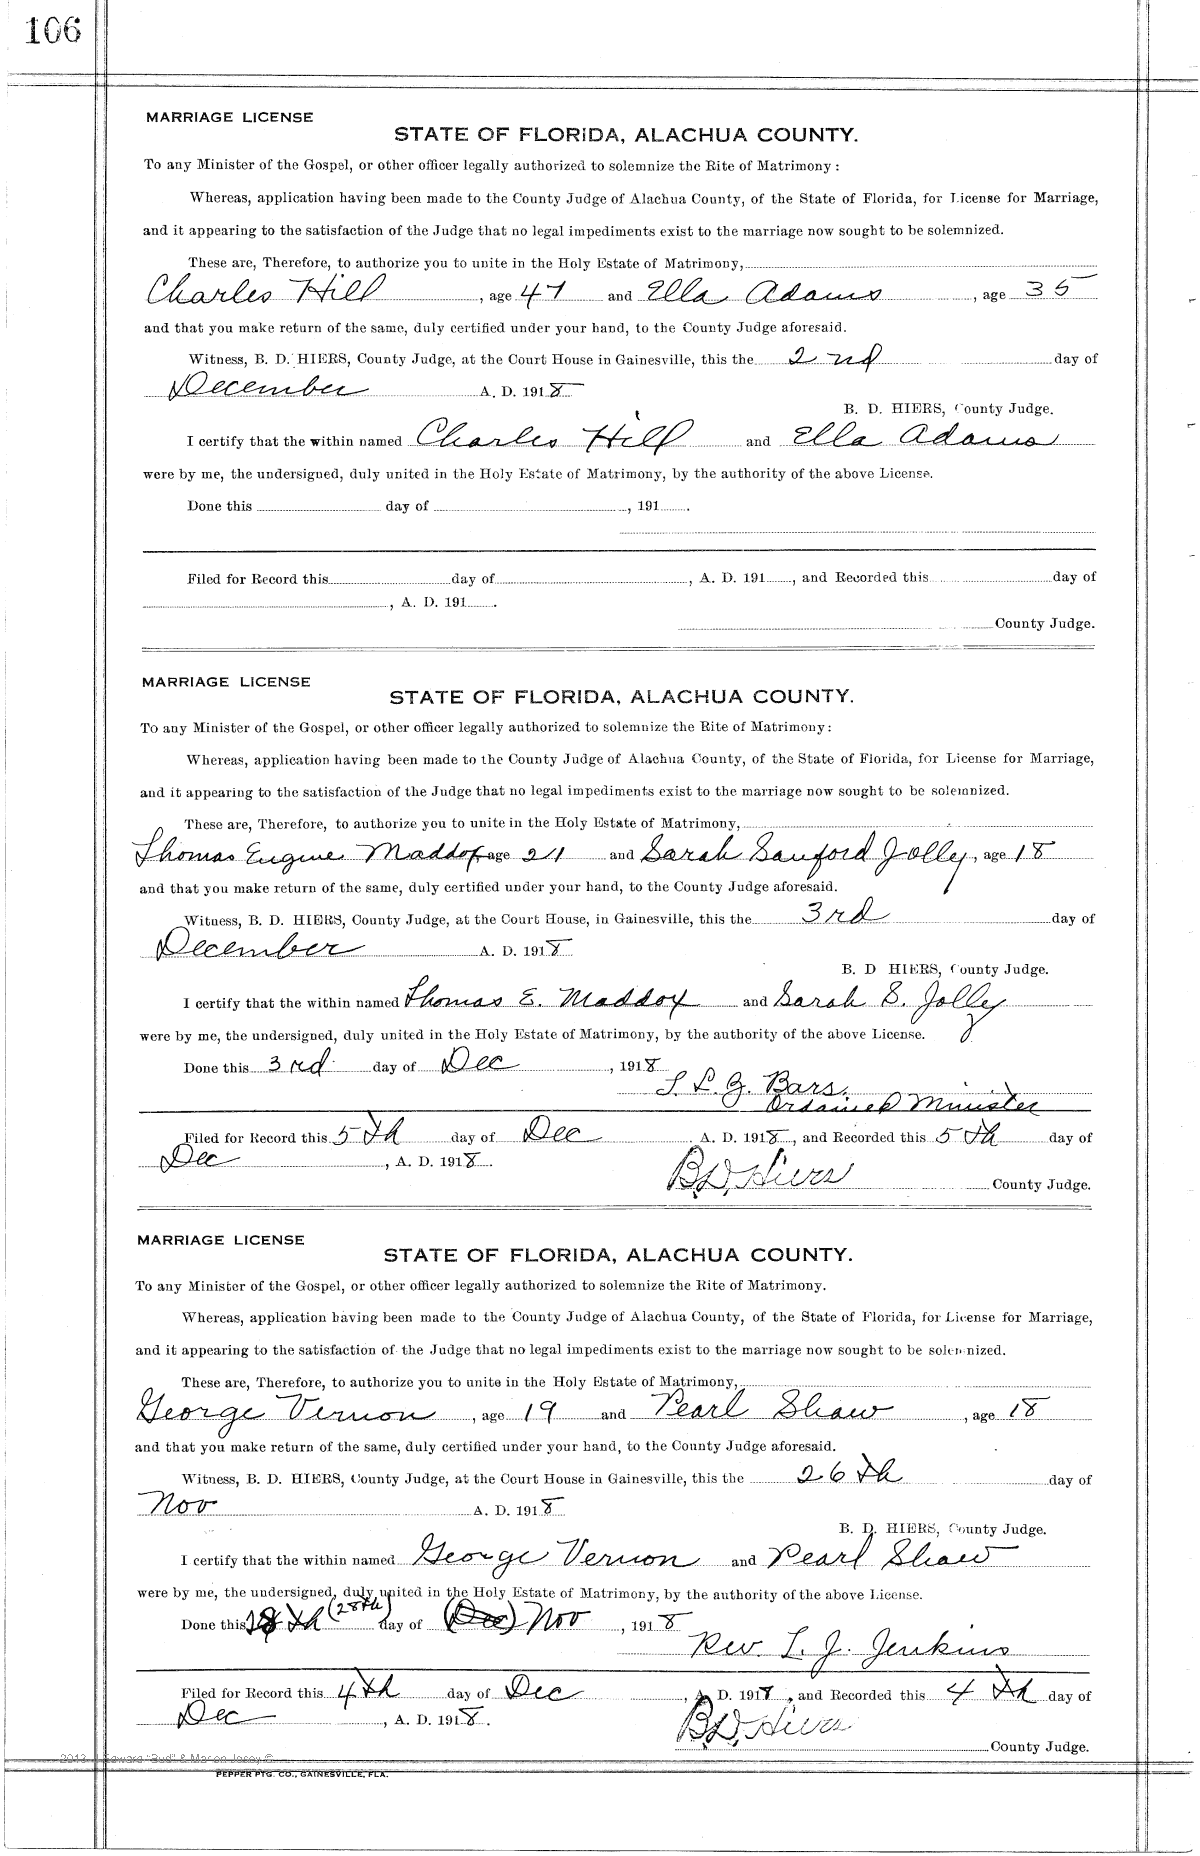 106
MARRIAGE LICENSE
STATE OF FLORIDA, ALACHUA COUNTY.
To any Minister of the Gospel, or other officer legally authorized to solemnize the Rite of Matrimony:
Whereas, application having been made to the County Judge of Alachua County, of the State of Florida, for License for Marriage,
and it appearing to the satisfaction of the Judge that no legal impediments exist to the marriage now sought to be solemnized.
These are, Therefore, to authorize you to unite in the Holy Estate of Matrimony,
Charles Hill , age 47 and Ella Adams , age 35
and that you make return of the same, duly certified under your hand, to the County Judge aforesaid.
Witness, B. D. HIERS, County Judge, at the Court House in Gainesville, this the 2nd day of
December A. D. 1918
B. D. HIERS, County Judge.
I certify that the within named Charles Hill and Ella Adams
were by me, the undersigned, duly united in the Holy Estate of Matrimony, by the authority of the above License.
Done this day of , 191 .
Filed for Record this day of , A. D. 191 , and Recorded this day of
, A. D. 191 .
County Judge.
MARRIAGE LICENSE
STATE OF FLORIDA, ALACHUA COUNTY.
To any Minister of the Gospel, or other officer legally authorized to solemnize the Rite of Matrimony:
Whereas, application having been made to the County Judge of Alachua County, of the State of Florida, for License for Marriage,
and it appearing to the satisfaction of the Judge that no legal impediments exist to the marriage now sought to be solemnized.
These are, Therefore, to authorize you to unite in the Holy Estate of Matrimony,
Thomas Eugene Maddox age 21 and Sarah Sanford Jolly , age 18
and that you make return of the same, duly certified under your hand, to the County Judge aforesaid.
Witness, B. D. HIERS, County Judge, at the Court House, in Gainesville, this the 3rd day of
December A. D. 1918
B. D HIERS, County Judge.
I certify that the within named Thomas E. Maddox and Sarah S. Jolly
were by me, the undersigned, duly united in the Holy Estate of Matrimony, by the authority of the above License.
Done this 3rd day of Dec , 1918
Bars.
Ordained Minister
Filed for Record this 5th day of Dec A. D. 1918, and Recorded this 5th day of
Dec , A. D. 1918.
B.D. Hiers County Judge.
MARRIAGE LICENSE
STATE OF FLORIDA, ALACHUA COUNTY.
To any Minister of the Gospel, or other officer legally authorized to solemnize the Rite of Matrimony.
Whereas, application having been made to the County Judge of Alachua County, of the State of Florida, for License for Marriage,
and it appearing to the satisfaction of the Judge that no legal impediments exist to the marriage now sought to be solemnized.
These are, Therefore, to authorize you to unite in the Holy Estate of Matrimony,
George Vernon , age 19 and Pearl Shaw , age 18
and that you make return of the same, duly certified under your hand, to the County Judge aforesaid.
Witness, B. D. HIERS, County Judge, at the Court House in Gainesville, this the 26th day of
Nov A. D. 1918
B. D. HIERS, County Judge.
I certify that the within named George Vernon and Pearl Shaw
were by me, the undersigned, duly united in the Holy Estate of Matrimony, by the authority of the above License.
Done this th (28th) day of (Dec) Nov , 1918
Rev. L. J. Jenkins
Filed for Record this 4th day of Dec , A. D. 1918, and Recorded this 4th day of
Dec , A. D. 1918.
B.D. Hiers County Judge.
PEPPER PTG. CO., GAINESVILLE, FLA.